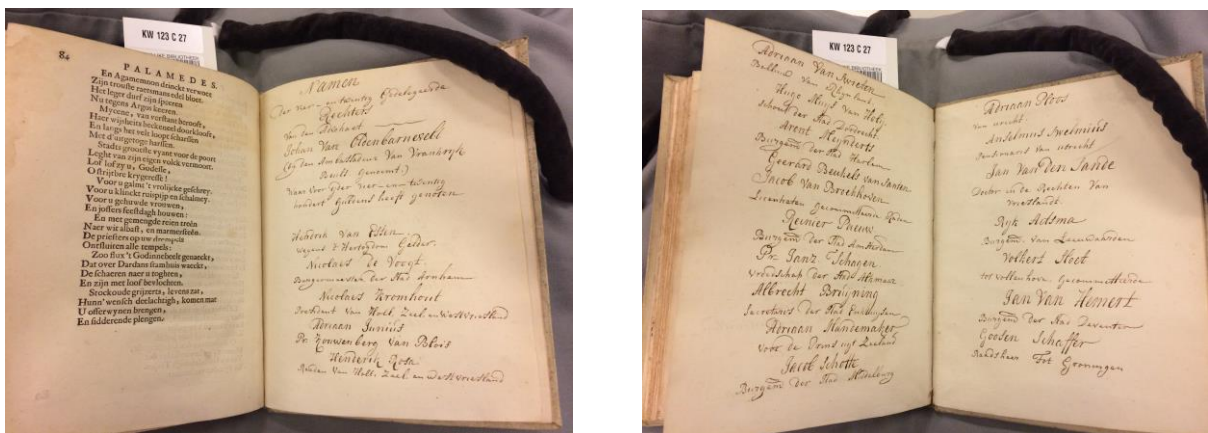 KW 123 C 27
84
PALAMEDES.
En Agamemnon drinckt verwoet
Zijn trouste raetsmans edel bloet.
Het leger durf zijn speeren
Nu tegens Argos keeren.
Mycene, van verstant berooft,
Haer wijsheits beckeneel doorklooft,
En langs het velt loopt scharssen
Met d'uitgetoge harssen.
Stadts grootste vyant voor de poort
Leght van zijn eigen volck vermoort.
Lof lof zy u, Godesse,
O strijtbre krygeresse!
Voor u galme 't vrolijcke geschrey.
Voor u klinckt ruispijp en schalmey.
Voor u gehuwde vrouwen,
En joffers feestdagh houwen:
En met gemengde reien treên
Naer wit albast, en marmersteên.
De priesters op uw drempels
Ontsluiten alle tempels:
Zoo flux 't Godinnebeelt genaeckt,
Dat over Dardans stamhuis waeckt,
De schaeren naer u toghten,
En zijn met loof bevlochten.
Stockoude grijzerts, levens zat,
Hunn' wensch deelachtigh, komen mat
U offerwynen brengen,
En sidderende plengen.
Namen
Der vier-en-twintig Gedelegeerde
Rechters
Van den Advokaat
Johan Van Oldenbarnevelt
(Door den Ambassadeur Van Vrankryk
Beuls Genoemt.)
Waar voor yder vier-en-twintig
hondert Guldens heeft genoten
Hendrik van Essen
wegens 't Hertogdom Gelder.
Nicolaes de Voogt.
Burgermeester der Stad Arnhem
Nicolaes Kromhout
President van Holl. Zeel. en Westvriesland
Adriaan Junius
Pr. Kouwenberg van Blois
Henderik Rosa
Raaden van Holl. Zeel. en Westvriesland
KW 123 C 27
Adriaan Van Swieten
Balliuw van Rhynland.
Hugo Muys van Holy.
schout der Stad Dordrecht.
Arent Meynderts
Burgem der Stad Harlem
Geerard Beukels van Santen
Jacob Van Broekhoven
Licentiaten Gecommitteerde Raden
Reinier Pauw
Burgem der Stad Amsterdam
Pr. Janz Schagen
vroedschap der Stad Alkmaar.
Albrecht Bruyning
Secretaris der Stad Enkhuysen
Adriaan Mandemaker
voor de Vorms uyt Zeeland
Jacob Schotte
Burgem der Stad Middelburg
Adriaan Ploos
van utrecht.
Anselmus Swelmius
Pensionaris van utrecht
Jan Van den Sande
Doctor in de Rechten Van
Vrieslandt.
Ryk Adsma
Burgem van Leeuwaarden
Volkert Sloet
tot vollenhove.
Jan Van Hemert
Burgem der Stad Deventer
Goosen Schaffer
Raedsheer Tot Groningen